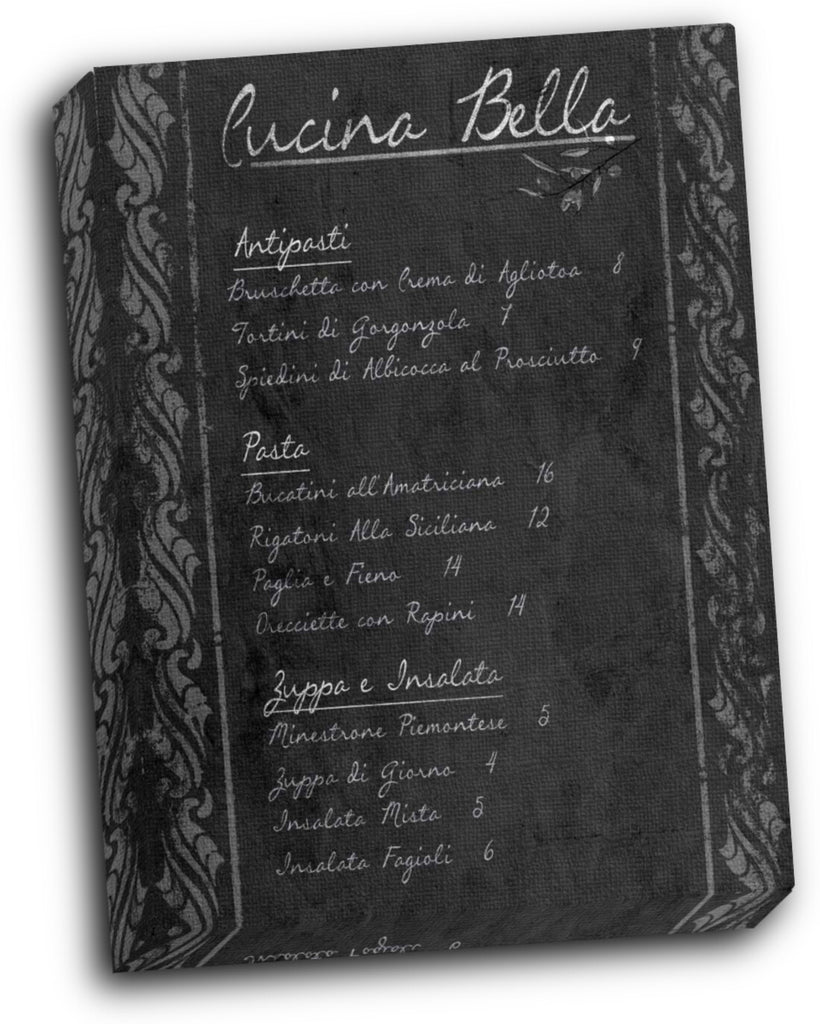 Cucina Bella
Antipasti
Bruschetta con Crema di Agliotoa 8
Tortini di Gorgonzola 7
Spiedini di Albicocca al Prosciutto 9
Pasta
Bucatini all'Amatriciana 16
Rigatoni Alla Siciliana 12
Paglia e Fieno 14
Orecciette con Rapini 14
Zuppa e Insalata
Minestrone Piemontese 5
Zuppa di Giorno 4
Insalata Mista 5
Insalata Fagioli 6